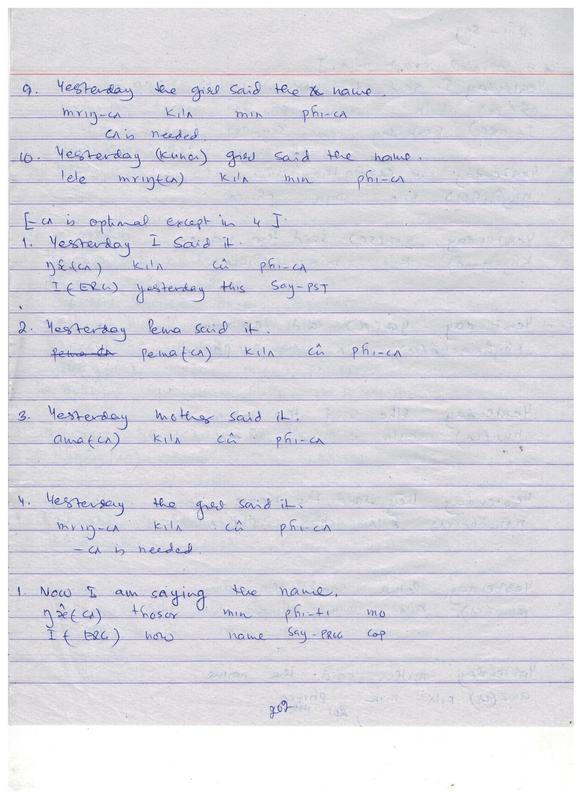 9. Yesterday the girl said the name.
mriŋ-cʌ kilʌ min phi-cʌ
cʌ is needed
10. Yesterday (Kunci) girl said the name.
lele mriŋ(cʌ) kilʌ min phi-cʌ
[-cʌ is optimal except in 4].
1. Yesterday I said it.
ŋæ̂(cʌ) kilʌ cû phi-cʌ
I(ERG) yesterday this say-PST
2. Yesterday Pema said it.
pema(cʌ) kilʌ cû phi-cʌ
3. Yesterday mother said it.
ama(cʌ) kilʌ cû phi-cʌ
4. Yesterday the girl said it.
mriŋ-cʌ kilʌ cû phi-cʌ
-cʌ is needed
1. Now I am saying the name.
ŋæ̂(cʌ) thosor min phi-ti mo
I(ERG) now name say-PRGG COP
202